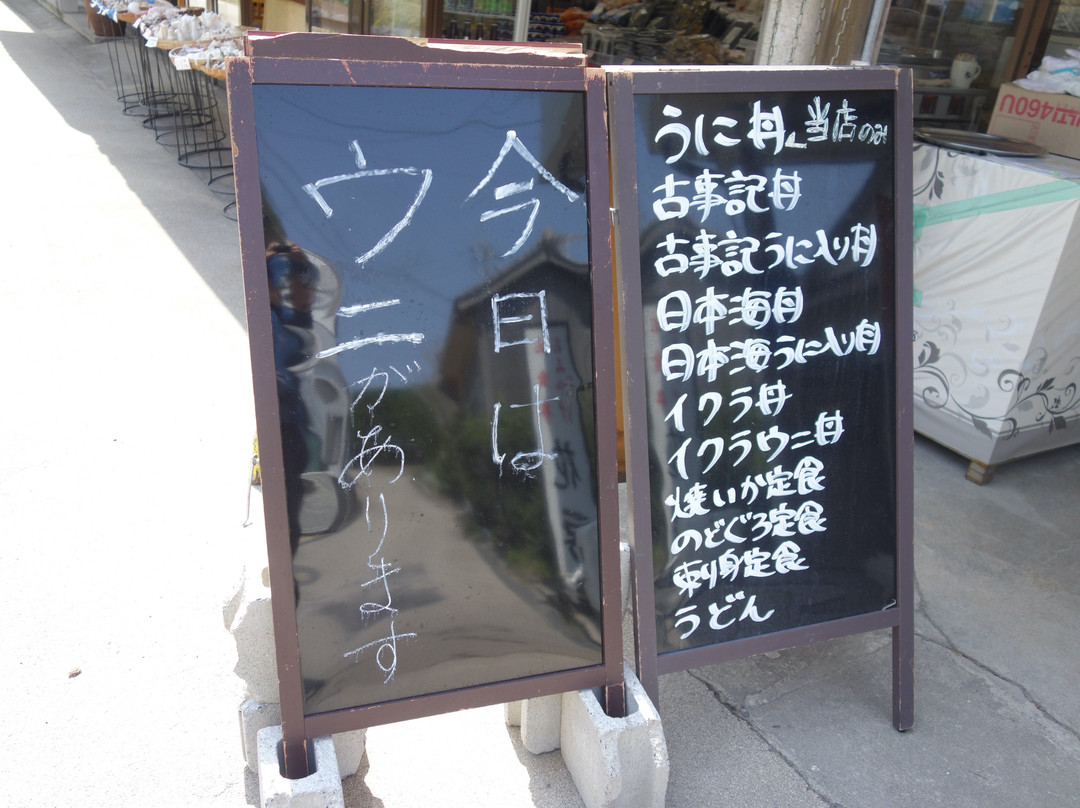 今日は
ウニがあります
うに丼 当店のみ
古事記丼
古事記うに入り丼
日本海丼
日本海うに入り丼
イクラ丼
イクラウニ丼
焼いか定食
のどぐろ定食
刺身定食
うどん